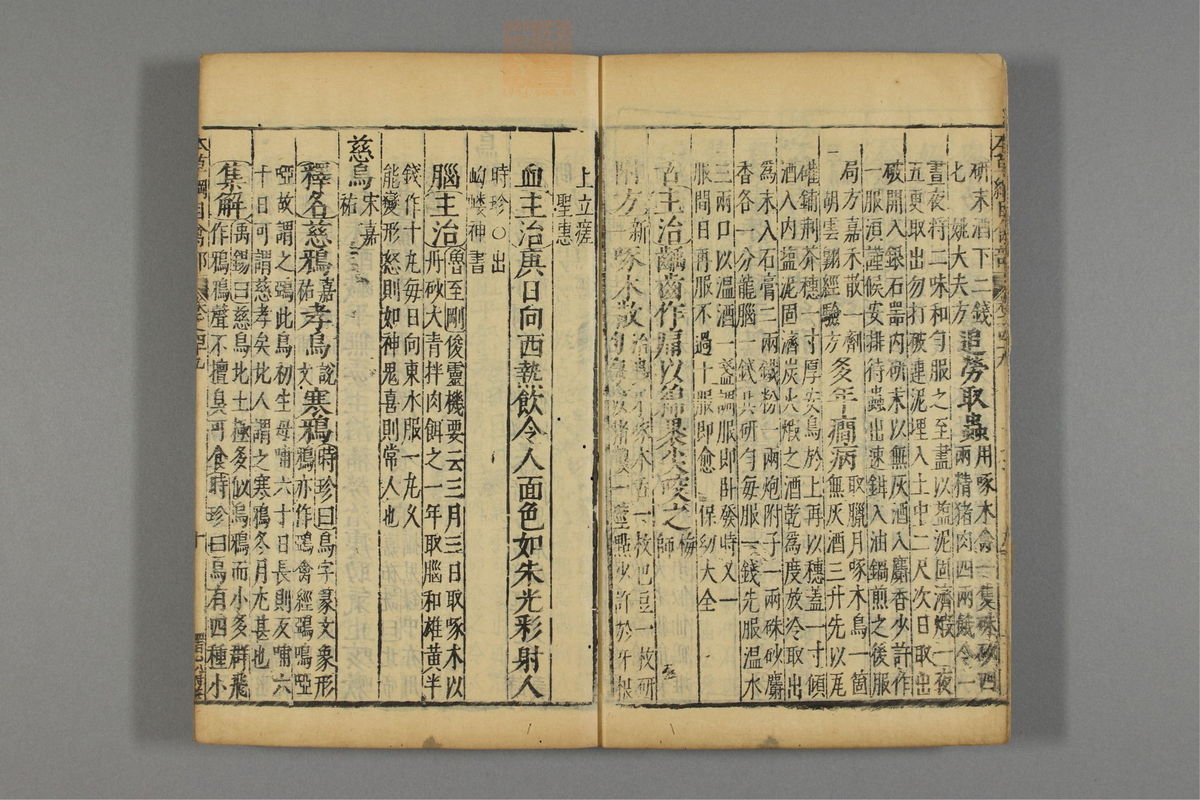 研末酒下二錢
匕 姚大夫方 追勞取蟲 用啄木禽一隻硃砂四兩精猪肉四兩餓令一
晝夜將二味和勻服之至盡以鹽泥固濟煅一夜
五更取出勿打破連泥埋入土中二尺次日取出
破開入銀石器內研末以無灰酒入麝香少許作
一服須謹候安排待蟲出速鉗入油鍋煎之後服
局方嘉禾散一劑 多年癇病 取臘月啄木鳥一箇
胡雲翱經驗方 無灰酒三升先以瓦
罐鋪荊芥穗一寸厚安鳥於上再以穗蓋一寸傾
酒入內鹽泥固濟炭火煅之酒乾為度放冷取出
為末入石膏二兩鐵粉一兩炮附子一兩硃砂麝
香各一分龍腦一錢共研勻每服一錢先服溫水
三兩口以溫酒一盞調服即臥發時又一
服間日再服不過十服即愈 保幼大全
舌 主治齲齒作痛以綿裹尖咬之 梅師
附方 新一 啄木散 治蟲牙啄木舌一枚巴豆一枚研
勻 一莖點少許於牙根
上立瘥
聖惠
血 主治庚日向西熱飲令人面色如朱光彩射人
時珍○出
岣嶁神書
腦 主治 魯至剛俊靈機要云三月三日取啄木以
丹砂大青拌肉餌之一年取腦和雄黃半
錢作十丸每日向東水服一丸久
能變形怒則如神鬼喜則常人也
慈烏 宋嘉祐
釋名 慈鴉 嘉祐 孝烏 說文 寒鴉 時珍曰烏字篆文象形
鴉亦作鵶禽經鵶鳴啞
啞故謂之鵶此鳥初生母哺六十日長則反哺六
十日可謂慈孝矣北人謂之寒鴉冬月尤甚也
集解 禹錫曰慈烏北土極多似烏鴉而小多群飛
作鴉鴉聲不擅臭可食時珍曰烏有四種小